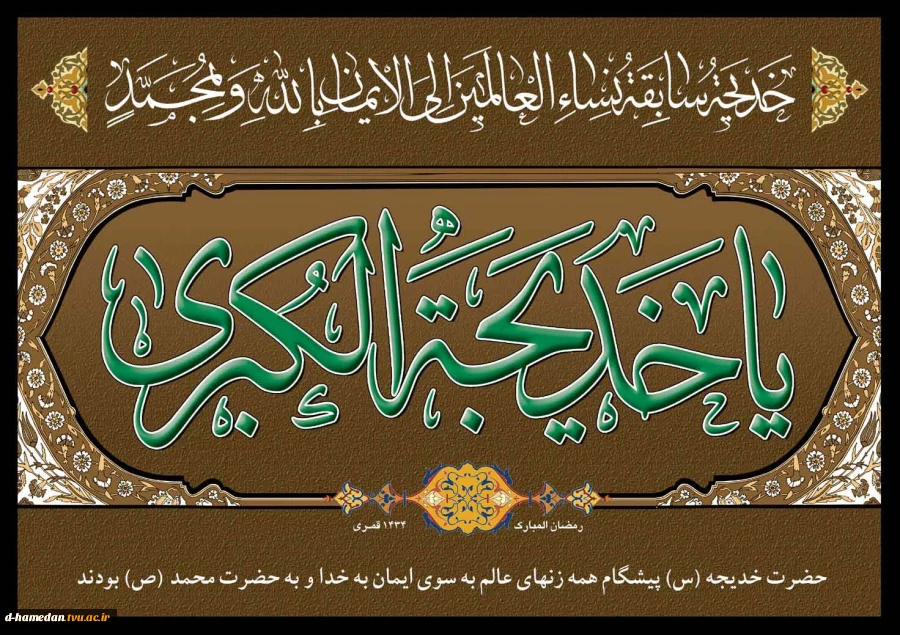 خَدیجَةُ سابِقَةُ نِساءِ العالَمینَ اِلَی الایمانِ بِاللّٰهِ وَ بِمُحَمَّدٍ
یا خَدیجَةُ الکُبری
رمضان المبارک ۱۴۳۴ قمری
حضرت خدیجه (س) پیشگام همه زنهای عالم به سوی ایمان به خدا و به حضرت محمد (ص) بودند
d-hamedan.tvu.ac.ir